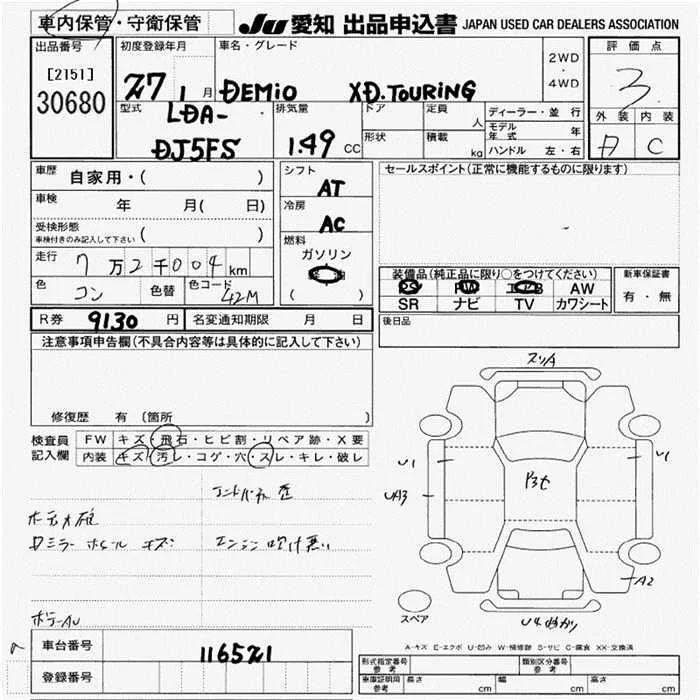 車内保管・守衛保管
JU 愛知 出品申込書 JAPAN USED CAR DEALERS ASSOCIATION
出品番号
[2151]
30680
初度登録年月
27 1 月
車名・グレード
DEMiO XD.TOURiNG
2WD
・
4WD
評価点
3
外装 内装
A C
型式
LDA-
DJ5FS
排気量
1.49 cc
ドア
形状
定員 人
積載 kg
ディーラー・並行
モデル年式 年
ハンドル 左・右
車歴 自家用・( )
車検 年 月( 日)
受検形態
車検付きのみ記入して下さい ( )
走行 7万2千004km
色 コン
色替
色コード 42M
シフト
AT
冷房
AC
燃料
ガソリン
( )
セールスポイント(正常に機能するものに限ります)
装備品(純正品に限り○をつけてください)
PS PW AW
SR ナビ TV カワシート
新車保証書
有・無
R券 9130 円
名変通知期限 月 日
後日品
注意事項申告欄(不具合内容等は具体的に記入して下さい)
修復歴 有 (箇所 )
検査員記入欄
FW キズ・飛石・ヒビ割・リペア跡・X要
内装 キズ・汚レ・コゲ・穴・スレ・キレ・破レ
スリA
U1
U1
UA3
A2
スペア
A-キズ E-エクボ U-凹み W-補修跡 S-サビ C-腐食 XX-交換済
エンジン吹け悪い
車台番号 116521
登録番号
型式指定番号 参考
類別区分番号 参考
車庫証明用 参考 長さ cm 幅 cm 高さ cm